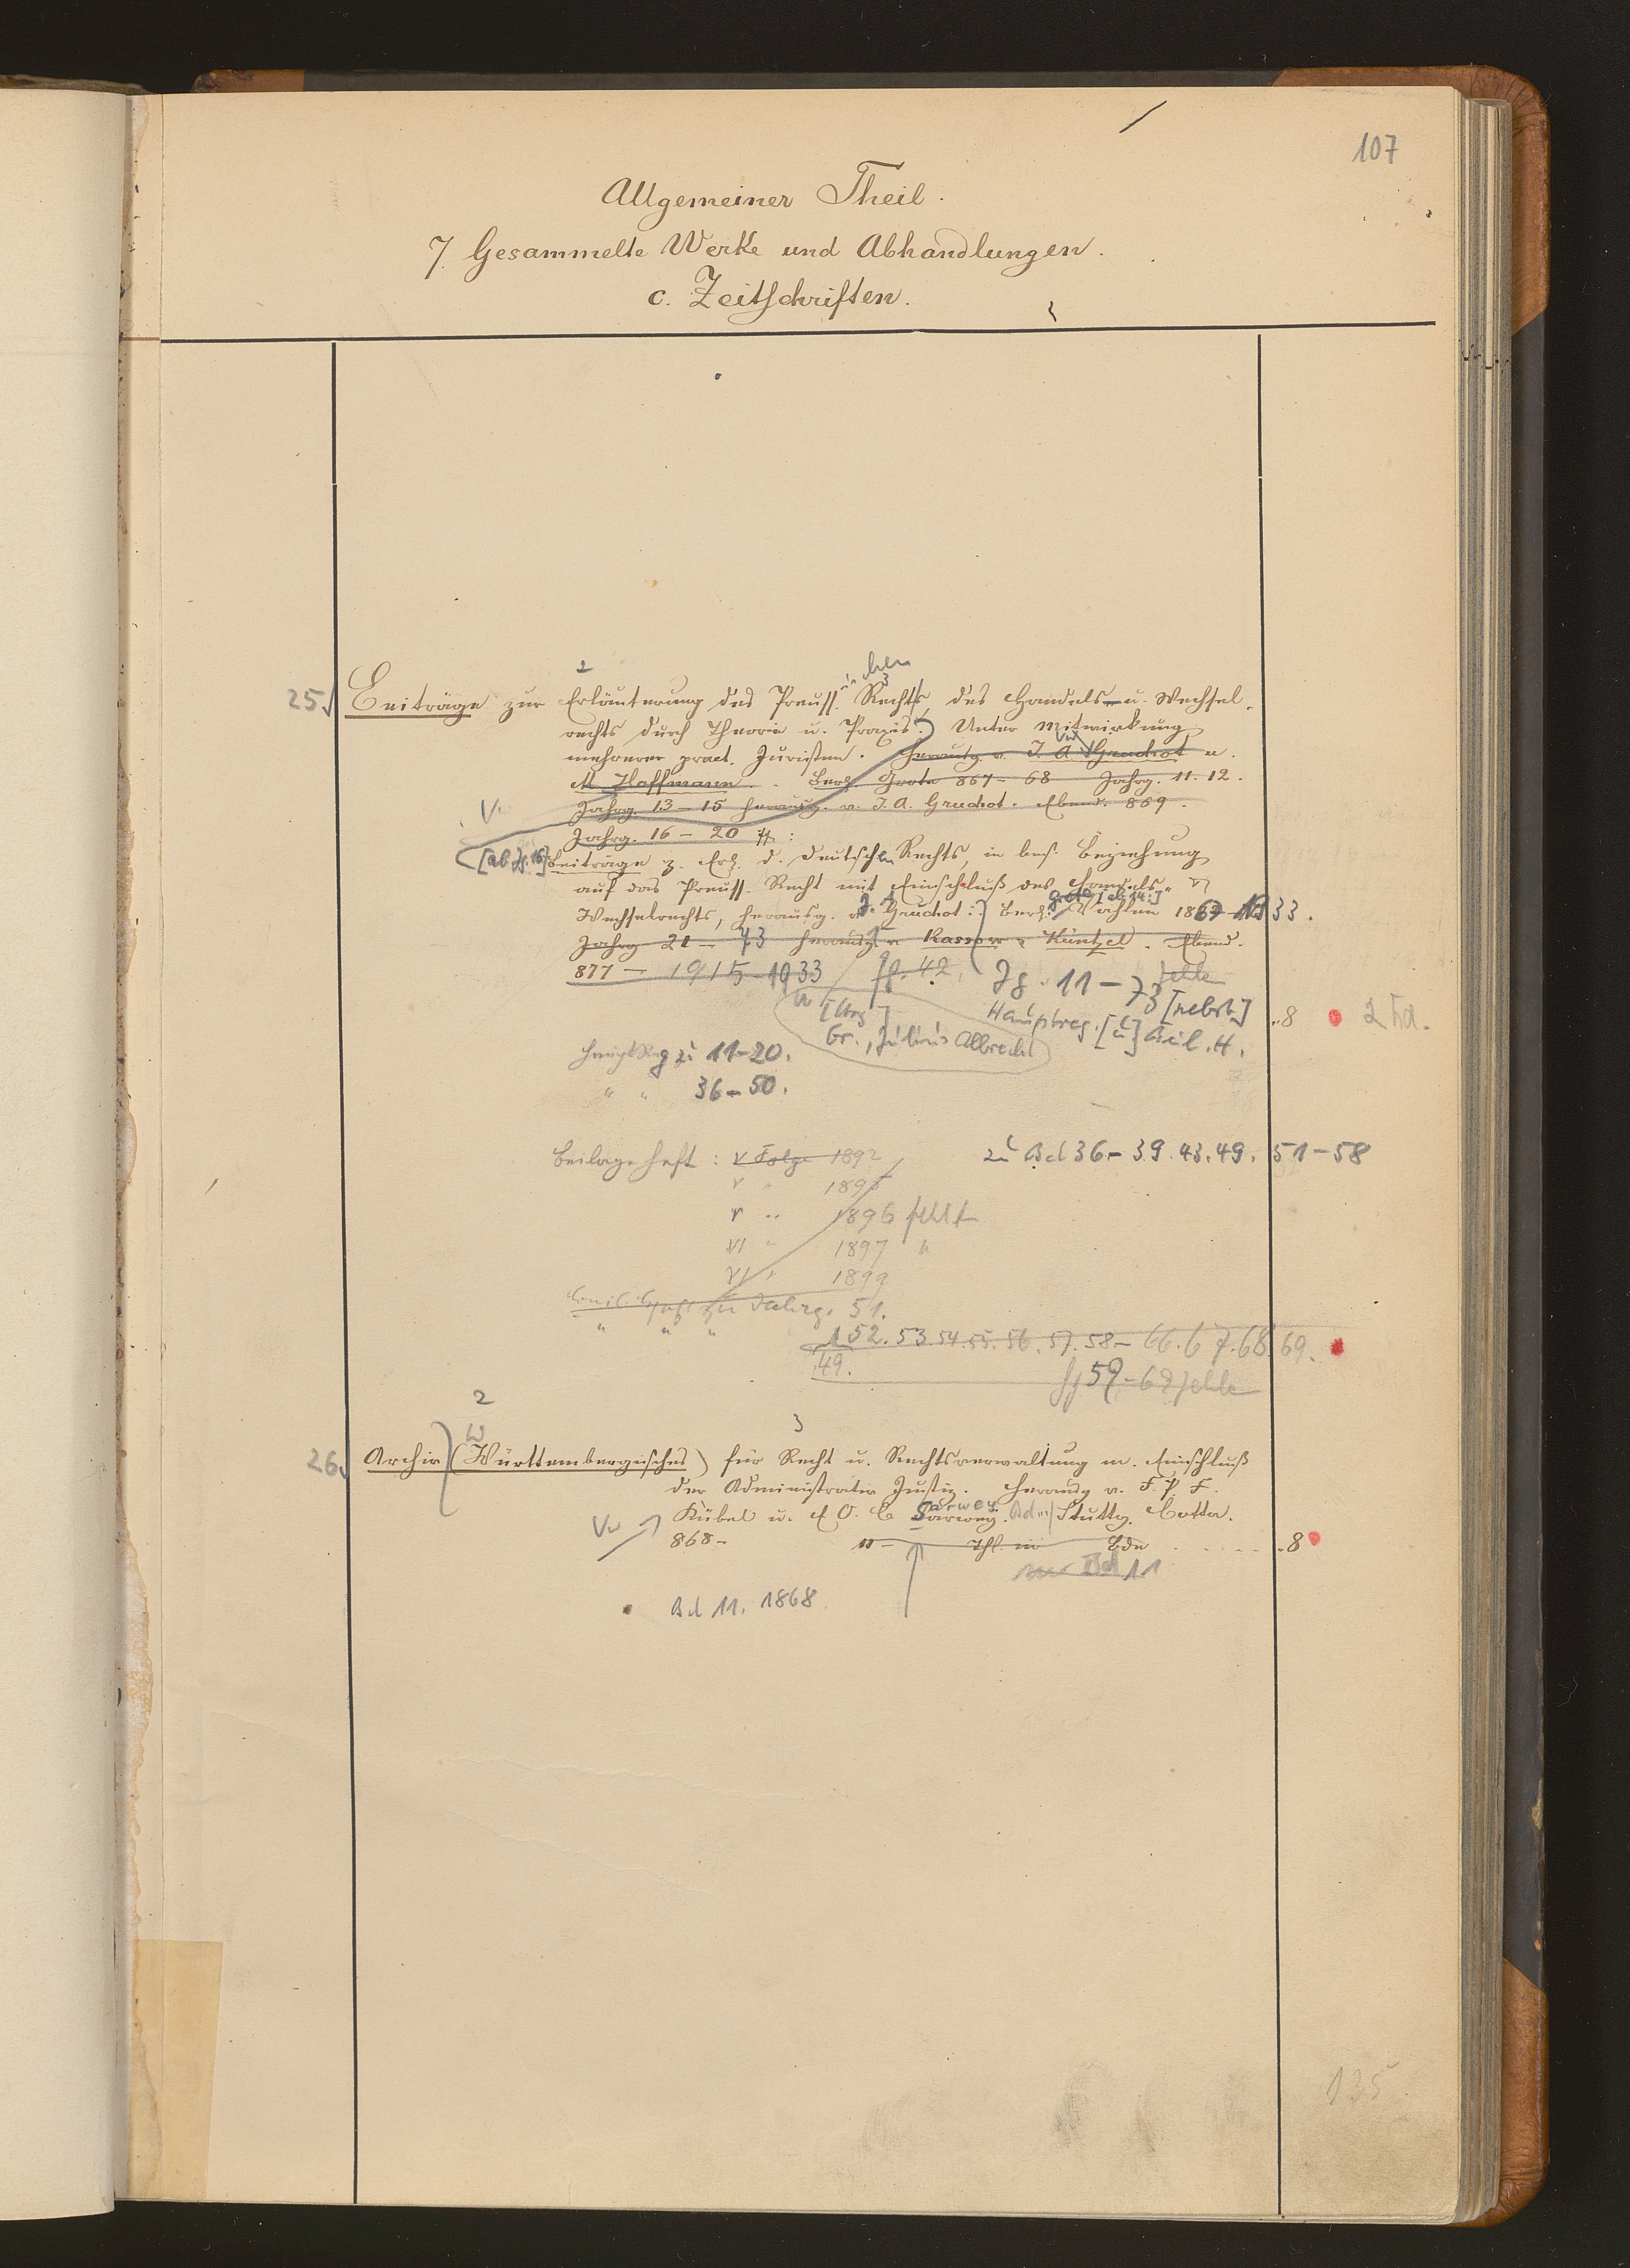 107
Allgemeiner Theil.
7. Gesammelte Werke und Abhandlungen.
c. Zeitschriften.
2
3
25 Beiträge zur Erläuterung des Preuss. Rechts, des Handels- u. Wechsel-
rechts durch Theorie u. Praxis. Unter Mitwirkung
mehrerer pract. Juristen. Herausg. v. J. A. Gruchot u.
M Haffmann. Berl. Grote 867-68 Jahrg. 11. 12.
V.
Jahrg. 13-15 herausg. v. J. A. Gruchot. Ebend. 869.
Jahrg. 16-20 :
[ab Jg. 16] Beiträge z. Erl. d. deutschen Rechts, in bes. Beziehung
auf das Preuss. Recht mit Einschluß des Handels- u
Wechselrechts, herausg. v. J. A. Gruchot. Berl. Vahlen 1867-1933.
Jahrg 21-73 herausg. v Rassow u Küntzel. Ebend.
877- 1915-1933 42. Jg. 11-73 [nebst]
Gr., Julius Albrecht
Hauptreg. [u] Beil. H. 8
Haupt Reg zu 11-20.
" " 36-50.
Beilageheft: V Folge 1892 zu Bd 36-39. 43. 49. 51-58
V " 1895
V " 1896 fehlt
VI " 1897 "
VI " 1899
zu Jahrg. 51.
" " "
52. 53. 54. 55. 56. 57. 58- 66. 67. 68. 69.
49.
59-69 fehlen
2
3
26 Archiv (Württembergisches) für Recht u. Rechtsverwaltung m. Einschluß
der Administrativ Justiz. Herausg v. F. P. F.
Kübel u. O. C Sarwey. Stuttg. Cotta.
868- 11- Thl. in Bdn 8
nur Bd 11
Bd 11. 1868
135